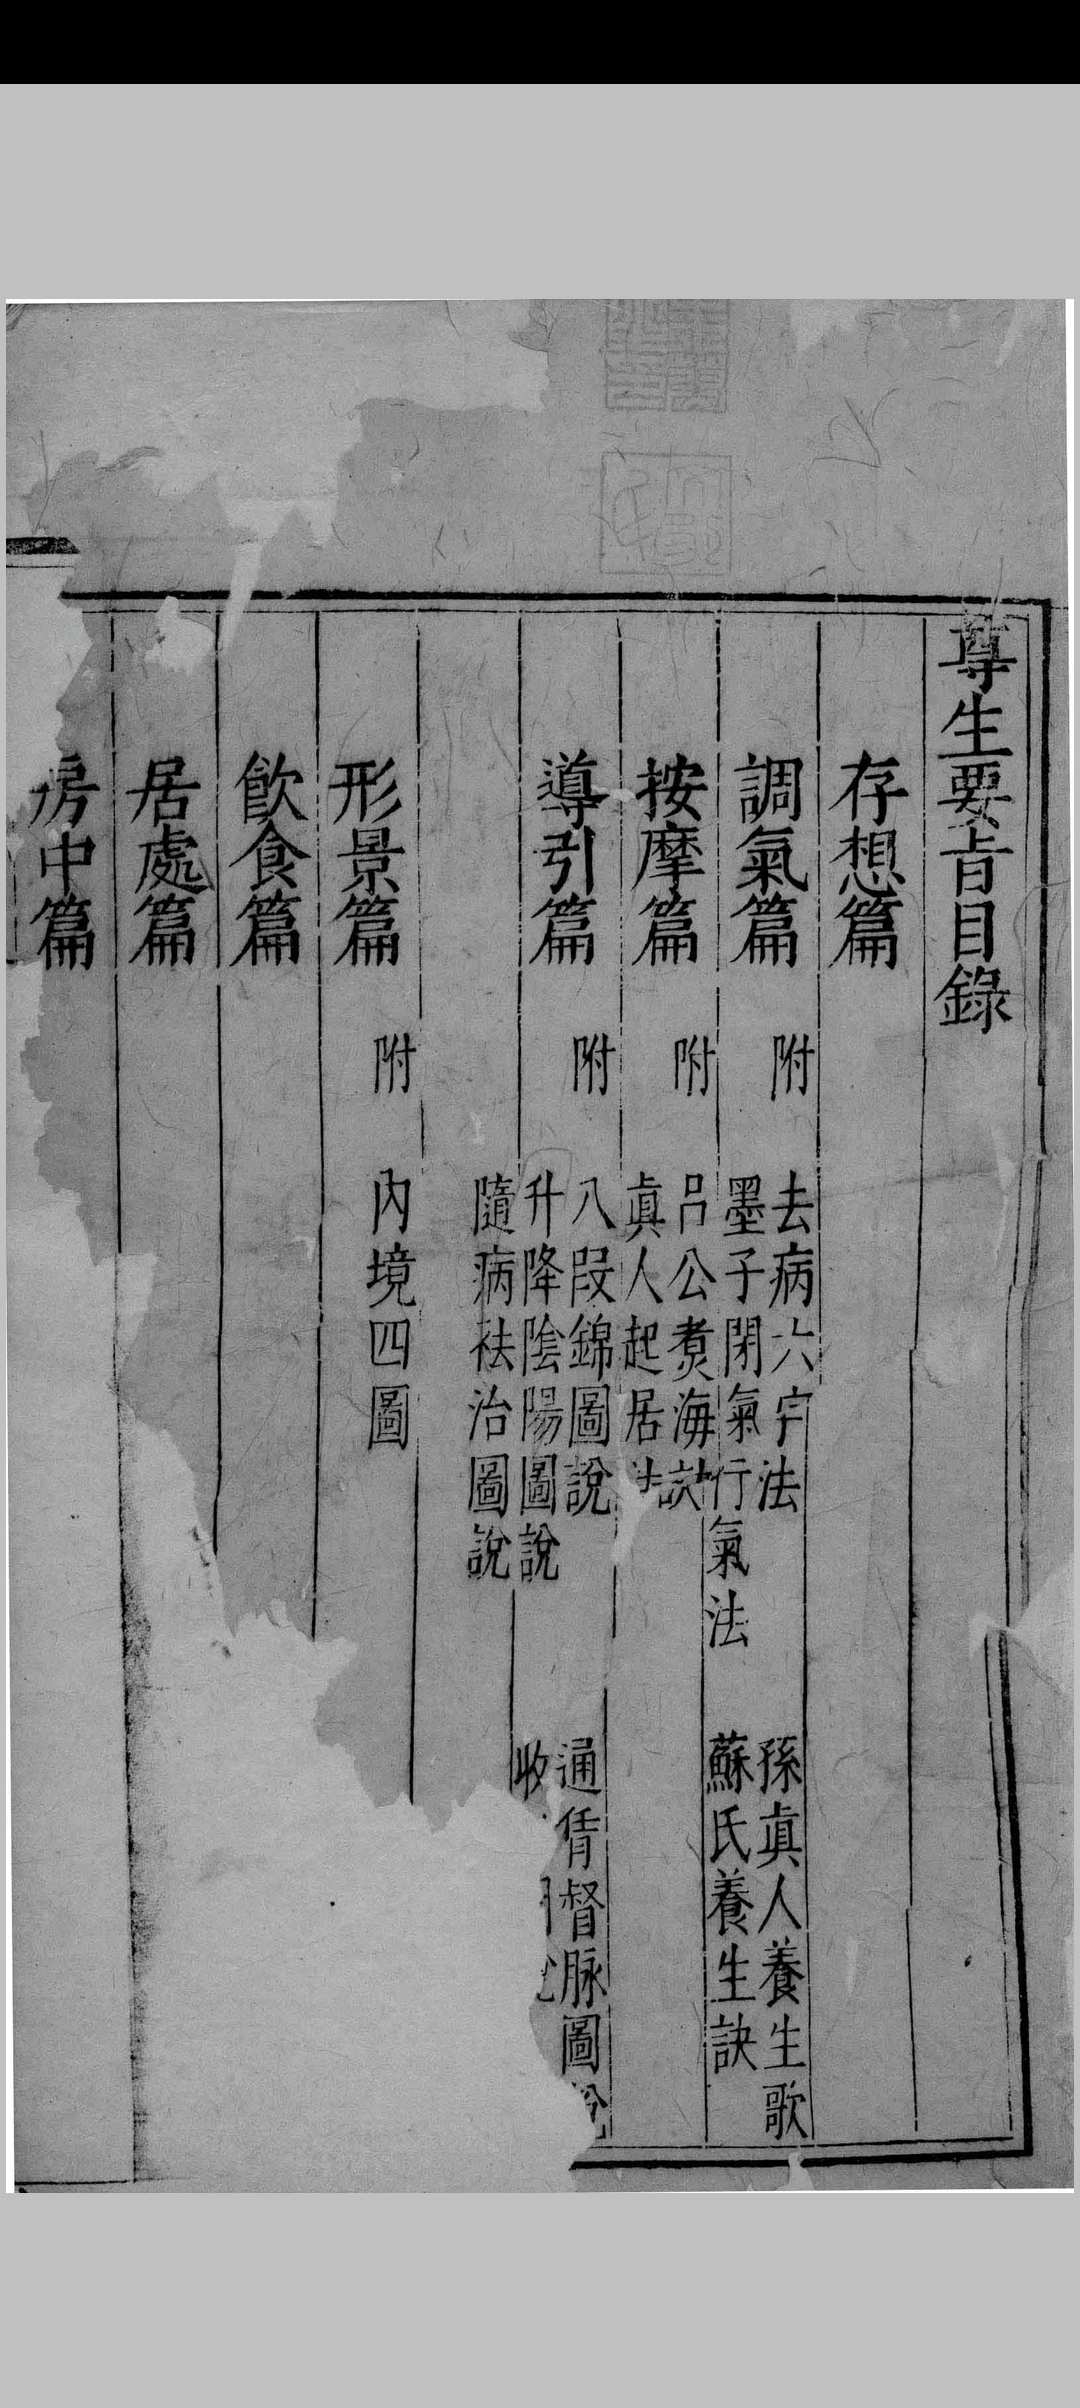 尊生要旨目錄
存想篇
調氣篇 附 去病六字法 孫眞人養生歌
墨子閉氣行氣法 蘇氏養生訣
按摩篇 附 呂公煑海訣
眞人起居法
導引篇 附 八段錦圖說 通任督脉圖說
升降陰陽圖說 收
隨病祛治圖說
形景篇 附 內境四圖
飲食篇
居處篇
房中篇